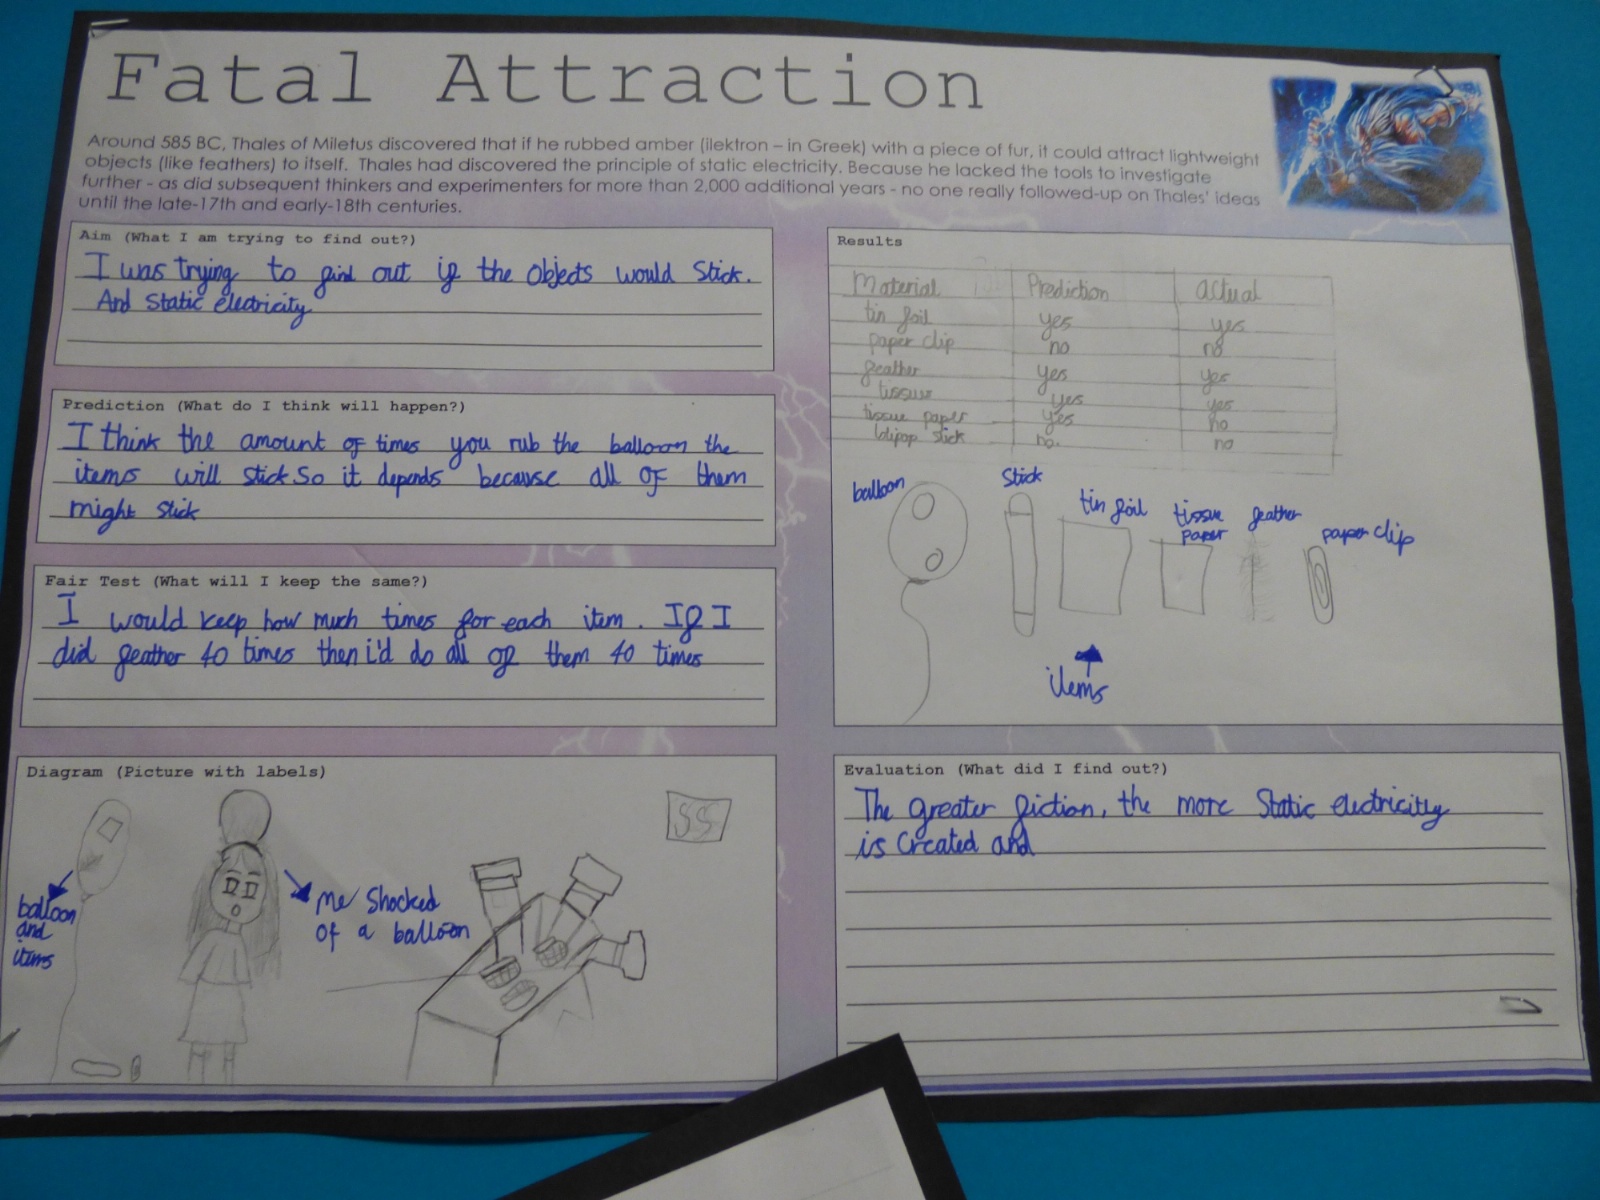 Fatal Attraction
Around 585 BC, Thales of Miletus discovered that if he rubbed amber (ilektron – in Greek) with a piece of fur, it could attract lightweight
objects (like feathers) to itself. Thales had discovered the principle of static electricity. Because he lacked the tools to investigate
further - as did subsequent thinkers and experimenters for more than 2,000 additional years - no one really followed-up on Thales' ideas
until the late-17th and early-18th centuries.
Aim (What I am trying to find out?)
I was trying to find out if the objects would Stick.
And Static electricity
Prediction (What do I think will happen?)
I think the amount of times you rub the balloon the
items will stick So it depends because all of them
might stick
Fair Test (What will I keep the same?)
I would keep how much times for each item. If I
did feather 40 times then i'd do all of them 40 times
Diagram (Picture with labels)
balloon
and
items
me Shocked
of a balloon
Results
Material Prediction actual
tin foil yes yes
paper clip no no
feather yes yes
tissue yes yes
tissue paper yes no
lolipop stick no. no
balloon
Stick
tin foil
tissue
paper
feather
paper clip
items
Evaluation (What did I find out?)
The greater fiction, the more Static electricitiy
is Created and